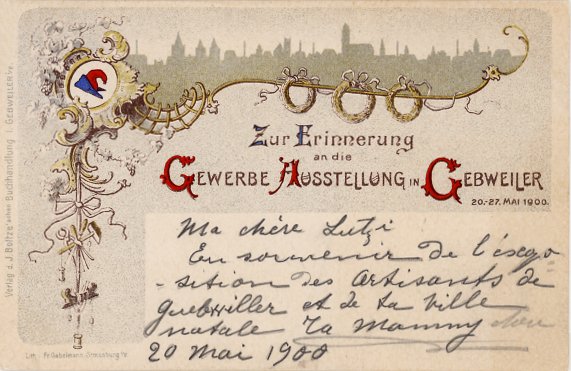 Zur Erinnerung
an die
Gewerbe Ausstellung in Gebweiler
20.-27. MAI 1900.
Ma chère Lutzi
En souvenir de l'expo
-sition des Artisants de
Guebwiller et de ta ville
natale Ta Mammy
20 Mai 1900
Verlag d. J. Boltze'schen Buchhandlung i. GEBWEILER i/e.
Lith. Fr. Gabelmann, Strassburg i/e.